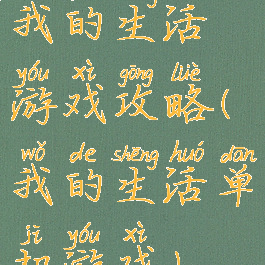 我的生活
yóu xì gōng lüè
游戏攻略(
wǒ de shēng huó dān
我的生活单
jī yóu xì
机游戏)